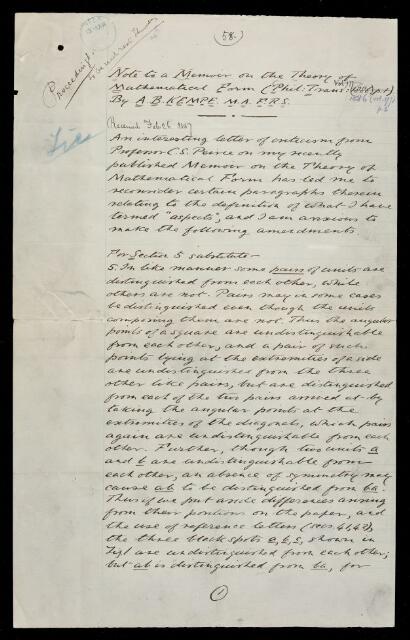 58.
Proceedings
Note to a Memoir on the Theory of
Mathematical Form (Phil: Trans: 1886 pt 1)
By A. B. KEMPE. M.A. F.R.S.
Received Feb 26 1887
An interesting letter of criticism from
Professor C. S. Peirce on my recently
published Memoir on the Theory of
Mathematical Form has led me to
reconsider certain paragraphs therein
relating to the definition of what I have
termed "aspects", and I am anxious to
make the following amendments.
For Section 5 substitute—
5. In like manner some pairs of units are
distinguished from each other, while
others are not. Pairs may in some cases
be distinguished even though the units
composing them are not. Thus the angular
points of a square are undistinguishable
from each other, and a pair of such
points lying at the extremities of a side
are undistinguished from the three
other like pairs, but are distinguished
from each of the two pairs arrived at by
taking the angular points at the
extremities of the diagonals, which pairs
again are undistinguishable from each
other. Further, though two units a
and b are undistinguishable from
each other, an absence of symmetry may
cause ab to be distinguished from ba.
Thus if we put aside differences arising
from their positions on the paper, and
the use of reference letters (secs 41, 42),
the three black spots a, b, c, shown in
Fig 1 are undistinguished from each other;
but ab is distinguished from ba, for
1